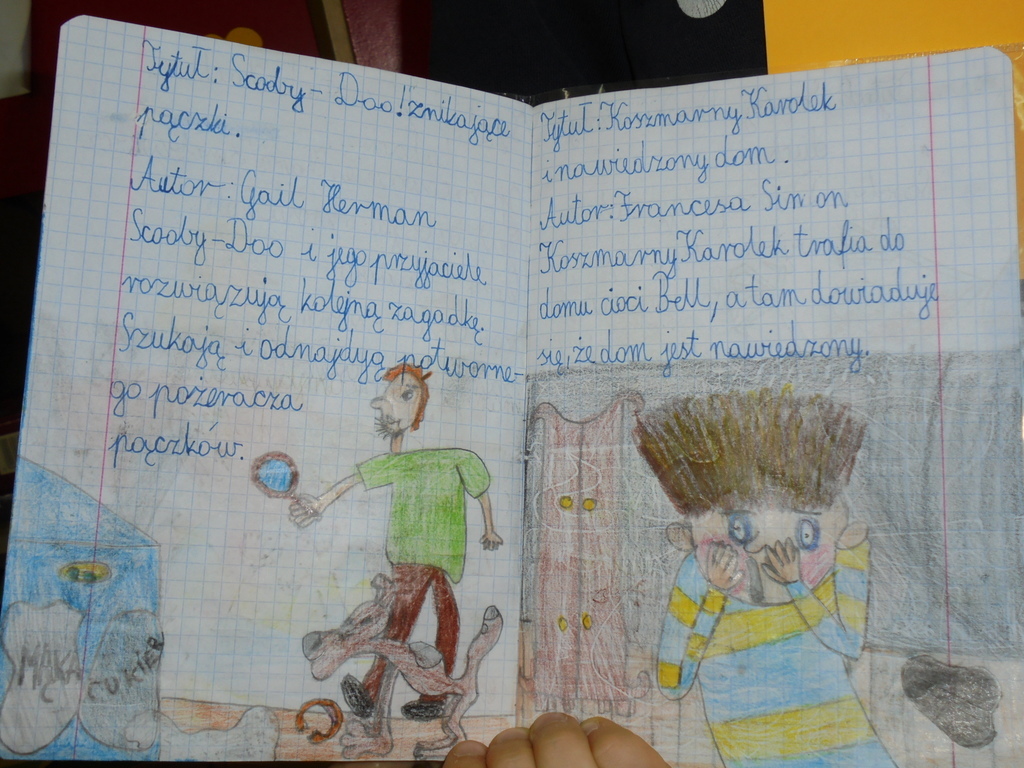 Tytuł: Scooby-Doo! znikające
pączki.
Autor: Gail Herman
Scooby-Doo i jego przyjaciele
rozwiązują kolejną zagadkę.
Szukają i odnajdują potworne-
go pożeracza
pączków.
MĄKA
CUKIER
Tytuł: Koszmarny Karolek
i nawiedzony dom.
Autor: Francesa Simon
Koszmarny Karolek trafia do
domu cioci Bell, a tam dowiaduje
się, że dom jest nawiedzony.